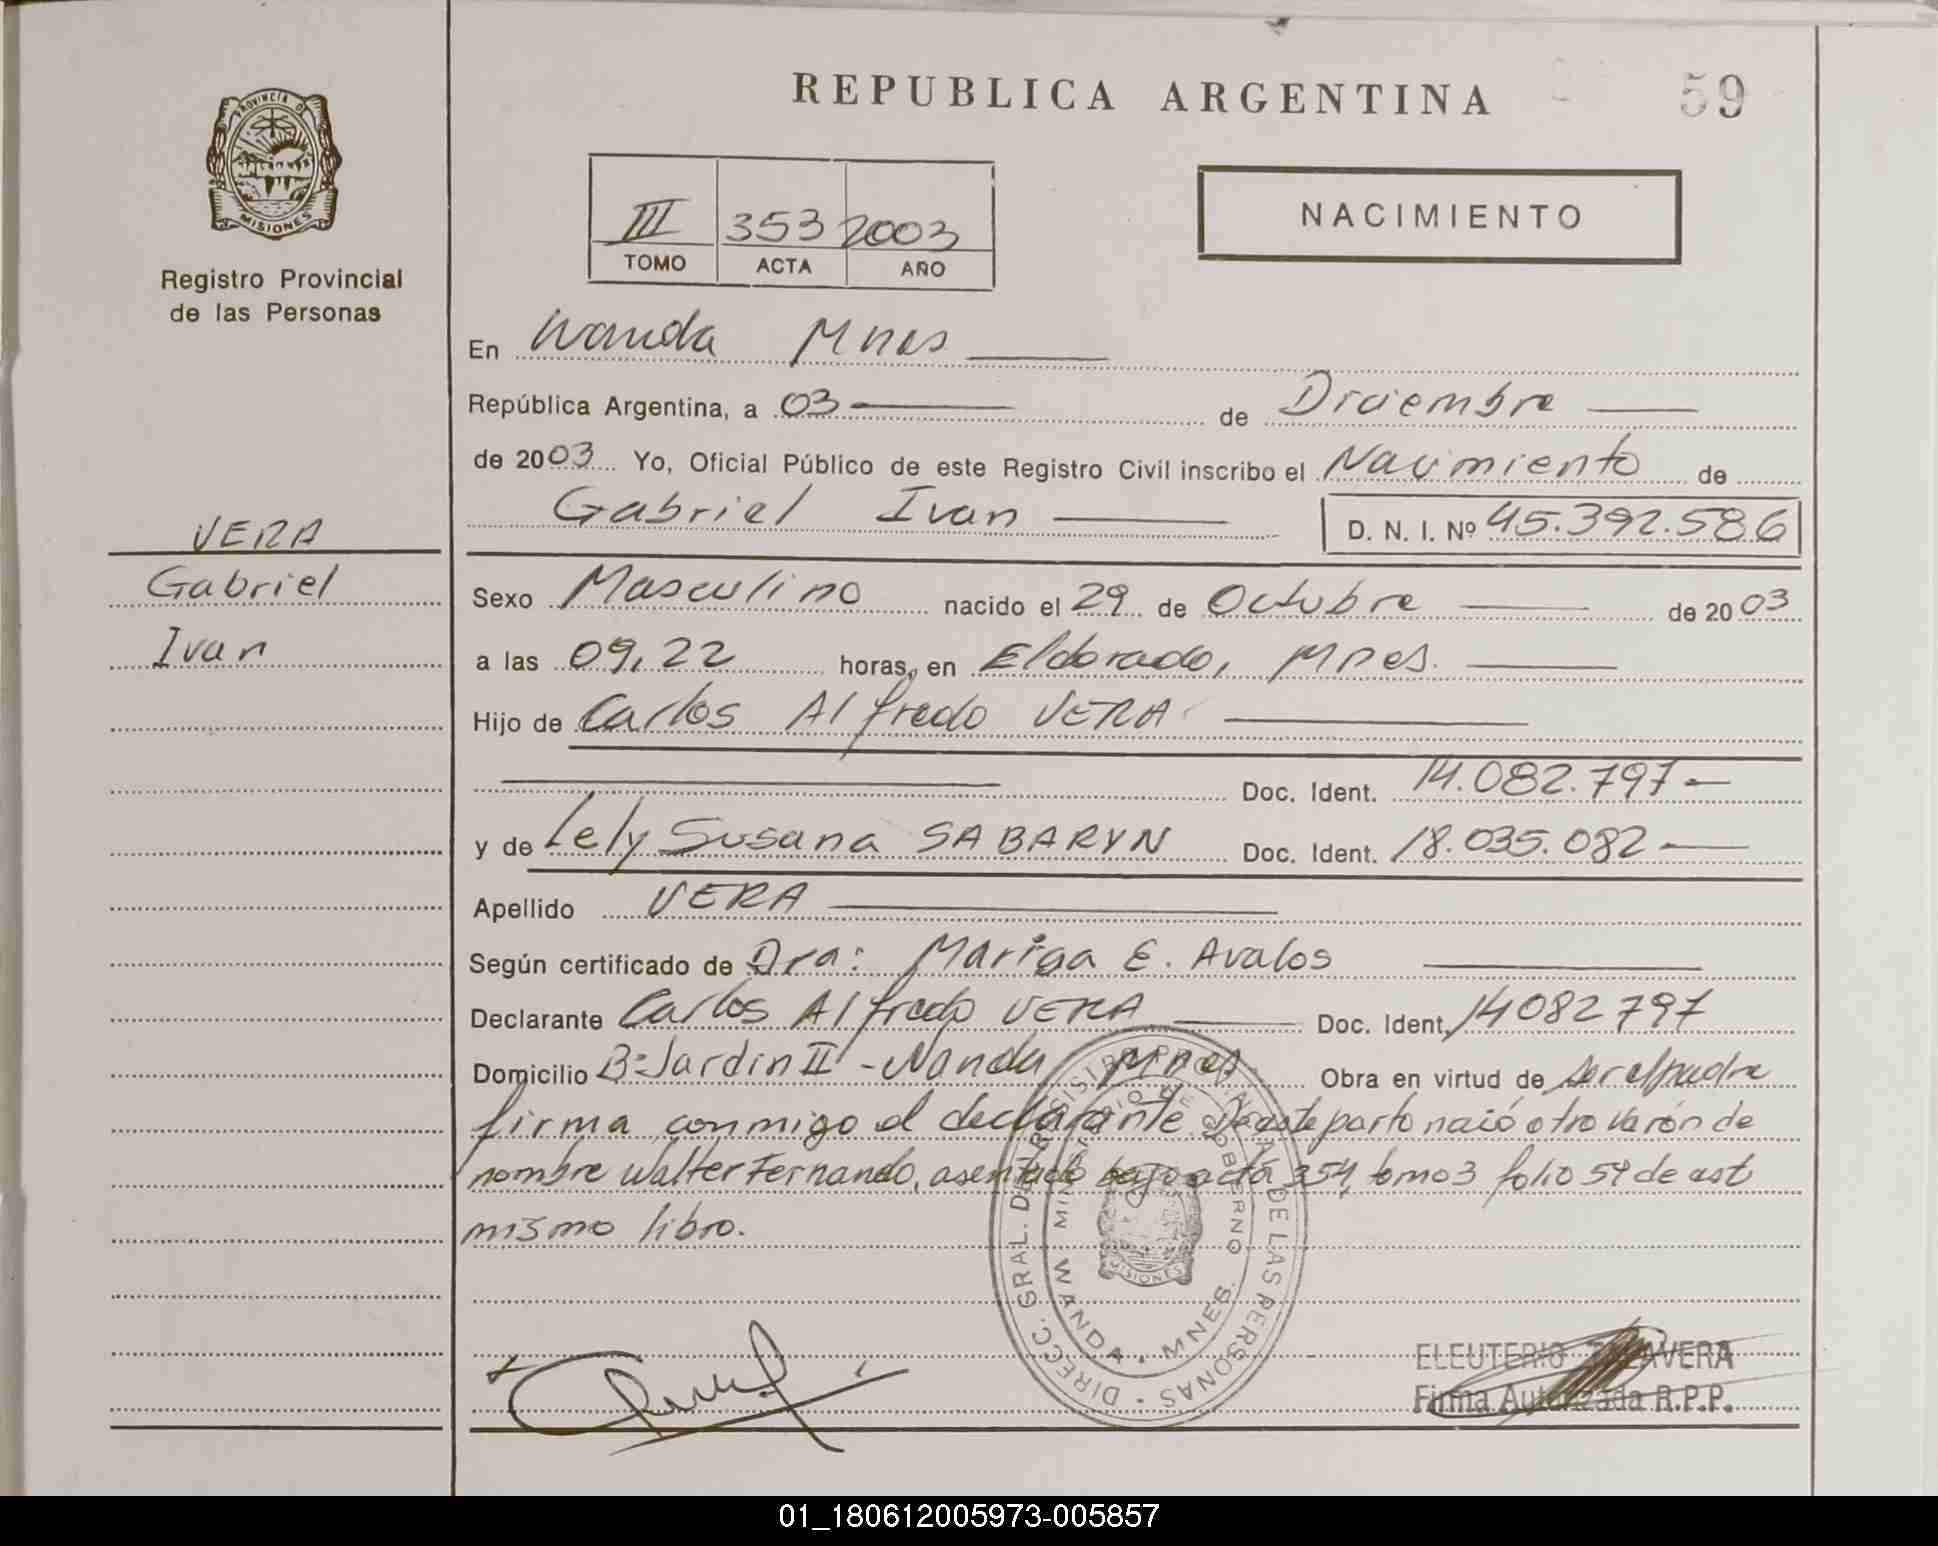 REPUBLICA ARGENTINA
59
PROVINCIA DE
MISIONES
Registro Provincial
de las Personas
III 353 2003
TOMO ACTA AÑO
NACIMIENTO
En Wanda Mnes
República Argentina, a 03 de Diciembre
de 2003 Yo, Oficial Público de este Registro Civil inscribo el Nacimiento de
Gabriel Ivan D. N. I. Nº 45.392.586
VERA
Gabriel
Ivan
Sexo Masculino nacido el 29 de Octubre de 2003
a las 09,22 horas, en Eldorado, Mnes.
Hijo de Carlos Alfredo VERA
Doc. Ident. 14.082.797
y de Lely Susana SABARYN Doc. Ident. 18.035.082
Apellido VERA
Según certificado de Dra: Mariga E. Avalos
Declarante Carlos Alfredo VERA Doc. Ident. 14082797
Domicilio Bº Jardin II - Wanda Mnes. Obra en virtud de ser el padre
firma conmigo el declarante De este parto nació otro varón de
nombre Walter Fernando, asentado bajo acta 354, tomo 3 folio 59 de est
mismo libro.
DIRECC. GRAL. DEL REGISTRO PROVINCIAL DE LAS PERSONAS
MINISTERIO DE GOBIERNO
WANDA - MNES.
MISIONES
ELEUTERIO TALAVERA
Firma Autorizada R.P.P.
01_180612005973-005857